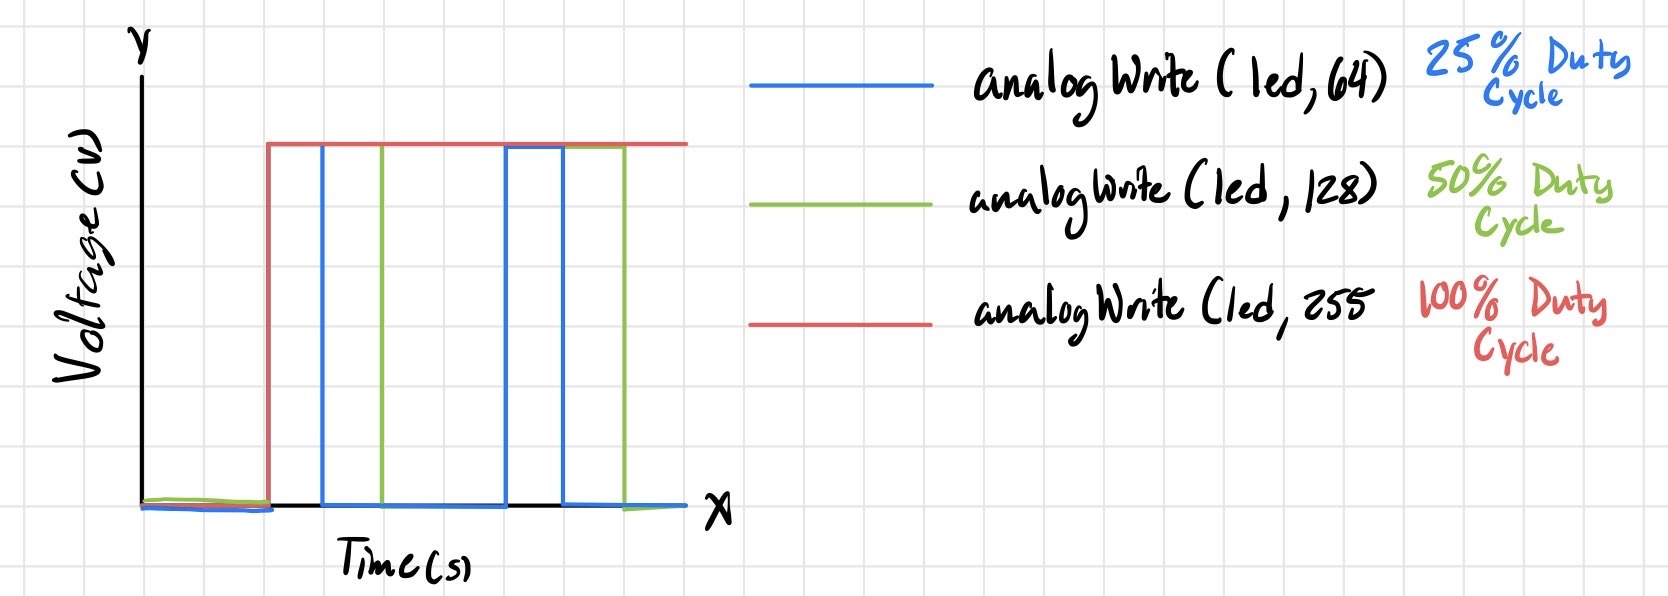 y
Voltage (v)
analogWrite (led, 64)
25% Duty
Cycle
analogWrite (led, 128)
50% Duty
Cycle
analogWrite (led, 255
100% Duty
Cycle
X
Time (s)